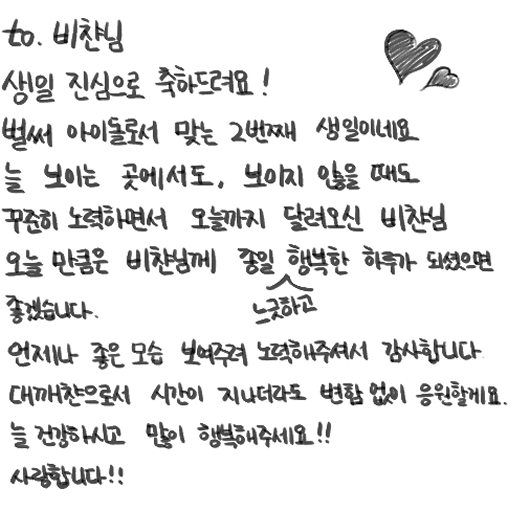 to. 비챤님
생일 진심으로 축하드려요!
벌써 아이돌로서 맞는 2번째 생일이네요
늘 보이는 곳에서도, 보이지 않을 때도
꾸준히 노력하면서 오늘까지 달려오신 비챤님
오늘 만큼은 비챤님께 종일 행복한 하루가 되셨으면
느긋하고
좋겠습니다.
언제나 좋은 모습 보여주려 노력해주셔서 감사합니다
대깨챤으로서 시간이 지나더라도 변함 없이 응원할게요.
늘 건강하시고 많이 행복해주세요!!
사랑합니다!!